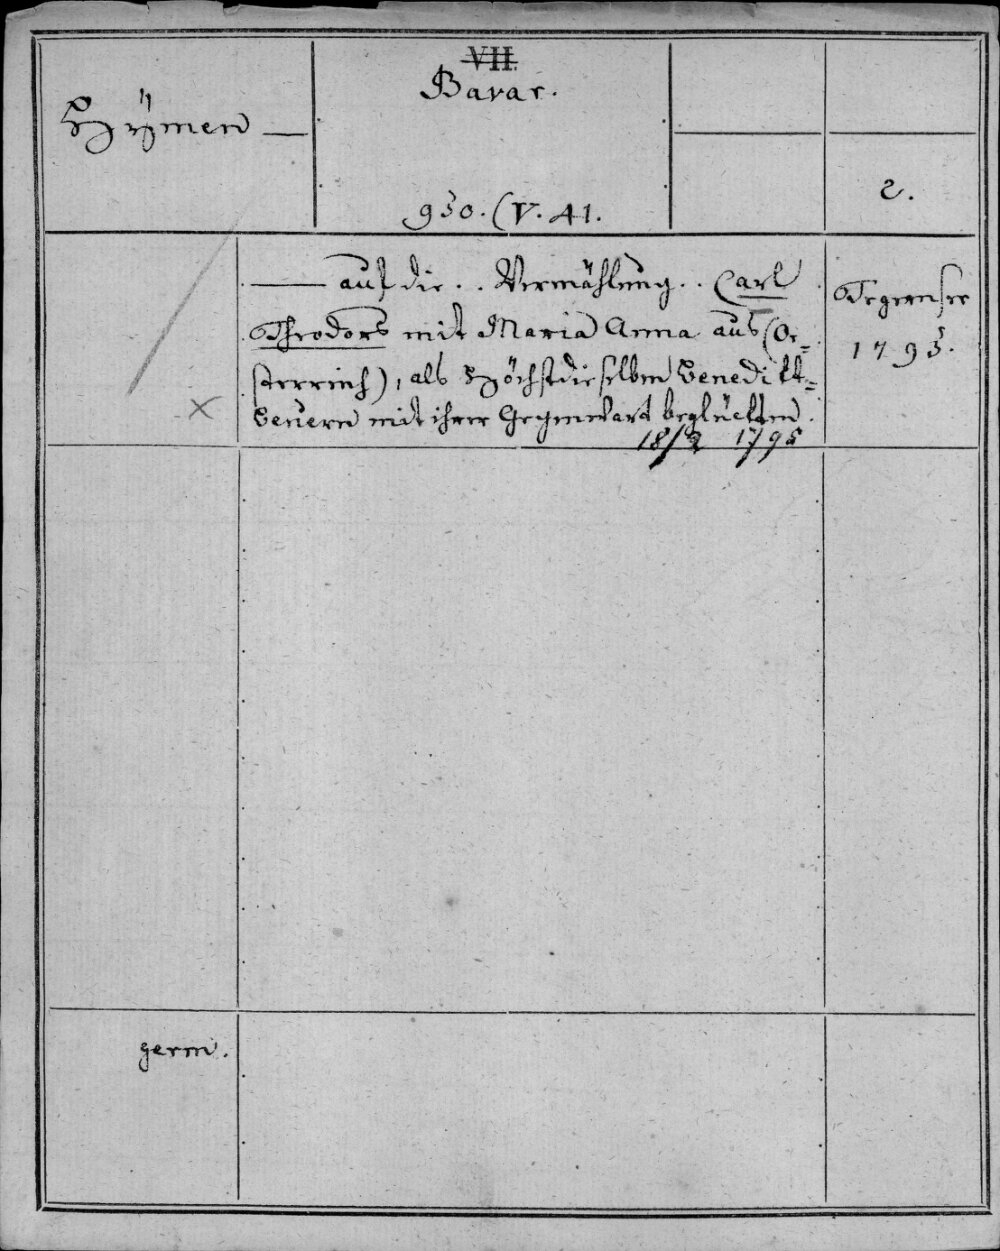 VII.
Bavar.
Hÿmen —
2.
950. (V. 41.
— auf die .. Vermählung .. Carl
Theodors mit Maria Anna aus (Oe=
sterreich), als Höchstdieselben Benedikt=
beuern mit ihrer Gegenwart beglückten.
18/3 1795
Tegernsee
1795.
germ.